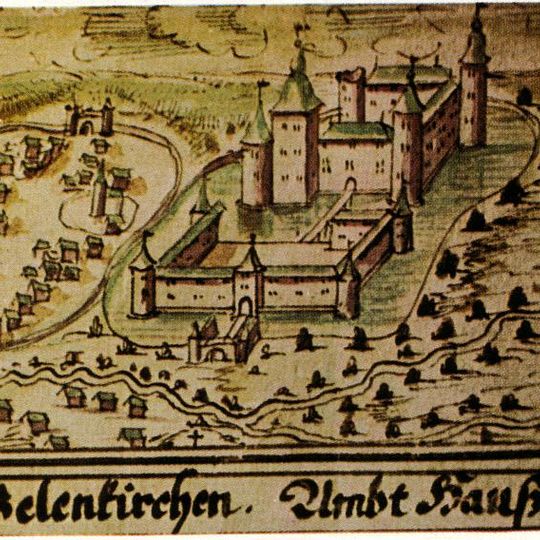 Gelenkirchen. Ambt Hauß